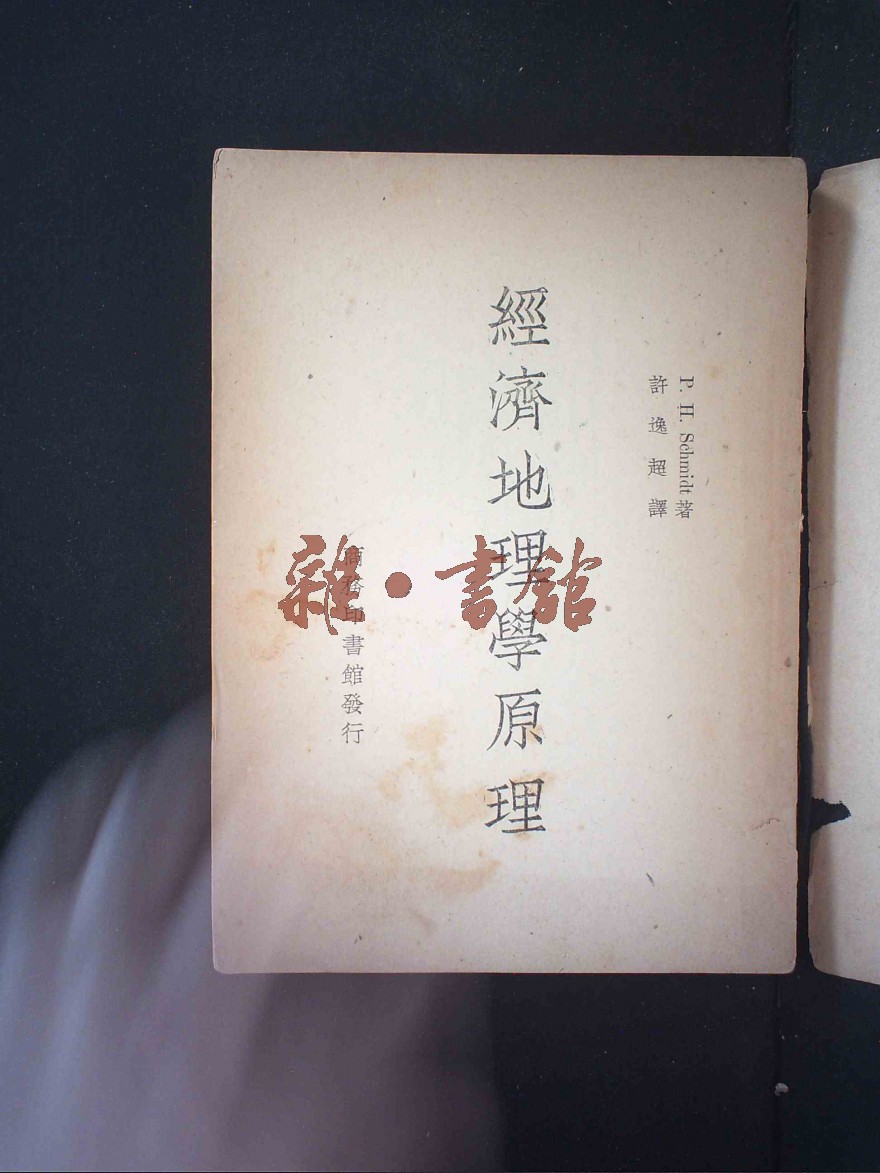 P. H. Schmidt著
許逸超譯
經濟地理學原理
商務印書館發行
雜·書館